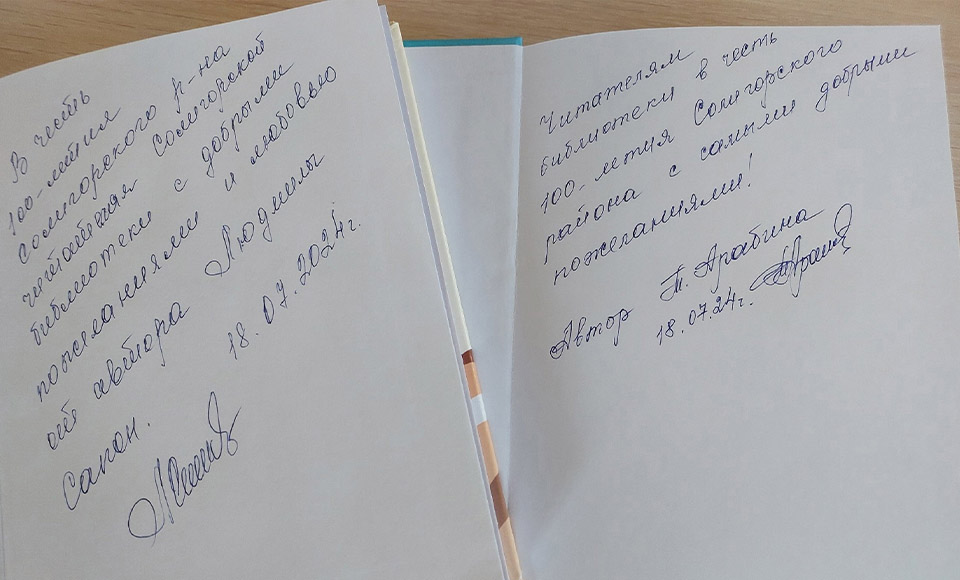 В честь
100-летия
Солигорского р-на
читателям Солигорской
библиотеки с добрыми
пожеланиями и любовью
от автора Людмилы
Сапон.
18.07.2024г.
Читателям
библиотеки в честь
100-летия Солигорского
района с самыми добрыми
пожеланиями!
Автор Т. Арабина
18.07.24г.